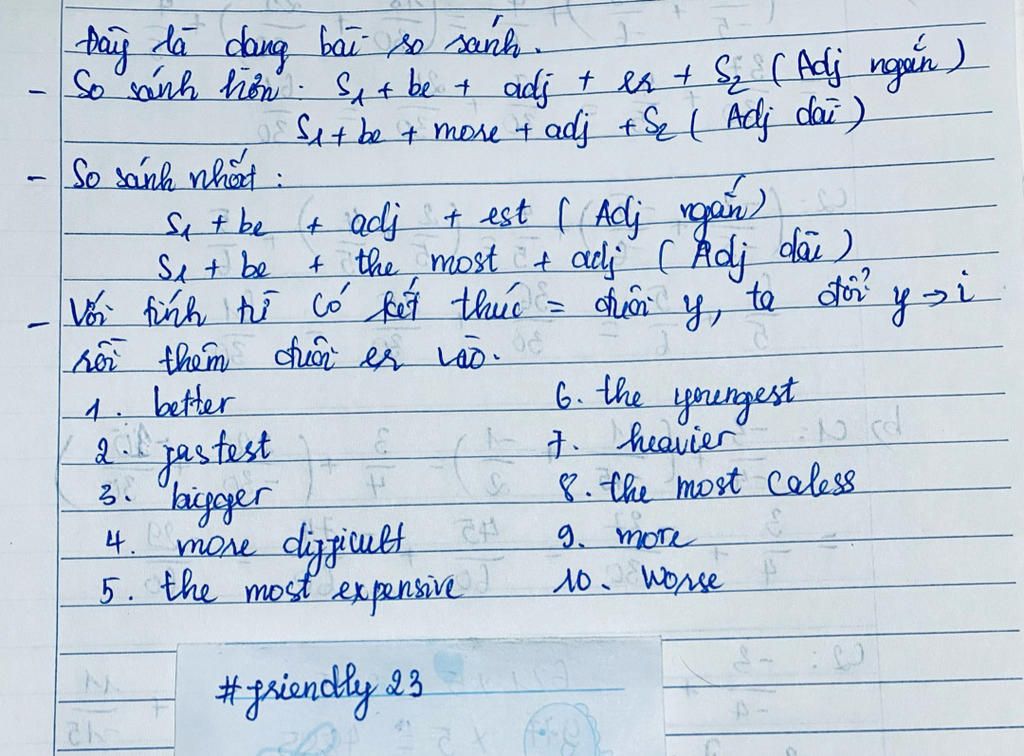 Đây là dạng bài so sánh.
- So sánh hơn: S1 + be + adj + er + S2 ( Adj ngắn )
S1 + be + more + adj + S2 ( Adj dài )
- So sánh nhất :
S1 + be + adj + est ( Adj ngắn )
S1 + be + the most + adj ( Adj dài )
- Với tính từ có kết thúc = đuôi y, ta đổi y → i
rồi thêm đuôi er vào.
1. better
2. fastest
3. bigger
4. more difficult
5. the most expensive
6. the youngest
7. heavier
8. the most caless
9. more
10. worse
#friendly 23